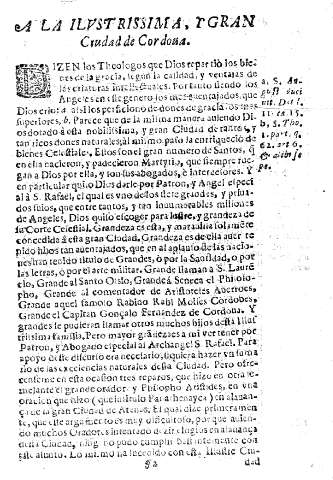 A LA ILVSTRISSIMA, Y GRAN
Ciudad de Cordoua.
DIZEN los Theologos que Dios repartiò los bie-
nes de la gracia, segun la calidad, y ventajas de
las criaturas intelectuales. Por tanto siendo los
Angeles en este genero los mas auentajados, que
Dios crió, assi los perficionò de dones de gracia los mas
superiores, b. Parece que de la misma manera auiendo Di-
os dotado à esta nobilissima, y gran Ciudad de tantos, y
tan ricos dones naturales, al mismo passo la enriqueciò de
bienes Celestiales. Estos son el gran numero de Santos, q̃
en ella nacieron, y padecieron Martyrio, que siempre rue-
gan a Dios por ella, y son sus abogados, è intercessores. Y
en particular quiso Dios darle por Patron, y Angel especi
al à S. Rafael, el qual es vno de los siete grandes, y priua-
dos suyos, que entre tantos, y tan innumerables millones
de Angeles, Dios quiso escoger para lustre, y grandeza de
su Corte Celestial. Grandeza es esta, y marauilla solamẽte
concedida à esta gran Ciudad. Grandeza es de ella auer te
nido hijos tan auentajados, que en al aplauso de las nacio-
nes han tenido titulo de Grandes, ò por la Santidad, o por
las letras, ò por el arte militar. Grande llaman a S. Laure
cio, Grande al Santo Osio, Grande à Seneca el Philoso-
pho, Grande al comentador de Aristoteles Auerroes,
Grande aquel famoso Rabino Rabi Moises Cordobes,
Grande el Capitan Gonçalo Fernandez de Cordoua. Y
grandes se pudieran llamar otros muchos hijos desta Ilus
trissima familia. Pero mayor grandeza es a mi ver tener por
Patron, y Abogado especial al Archangel S. Rafael. Para
apoyo deste discurso era necesario, siquiera hazer vn suma
rio de las excelencias naturales desta Ciudad. Pero ofre-
censeme en esta ocasion tres reparos, que hizo en otra se-
mejante el grande orador, y Philosopho Aristides, en vna
oracion que hizo (que intitulò Panathenayca) en alaban-
ça de la gran Ciudad de Atenas. El qual dize primeramen
te, que este argumento es muy dificultoso, por que auien-
do muchos Oradores intentado dezir elogios en alabança
desta Ciudad, ning. no pudo cumplir bastantemente con
este asunto. Lo mismo ha sucedido con esta Illustre Ciu-
§ 2 dad
a. S. Au-
b. S. Tho.
1. part. q.
62. art. 6.